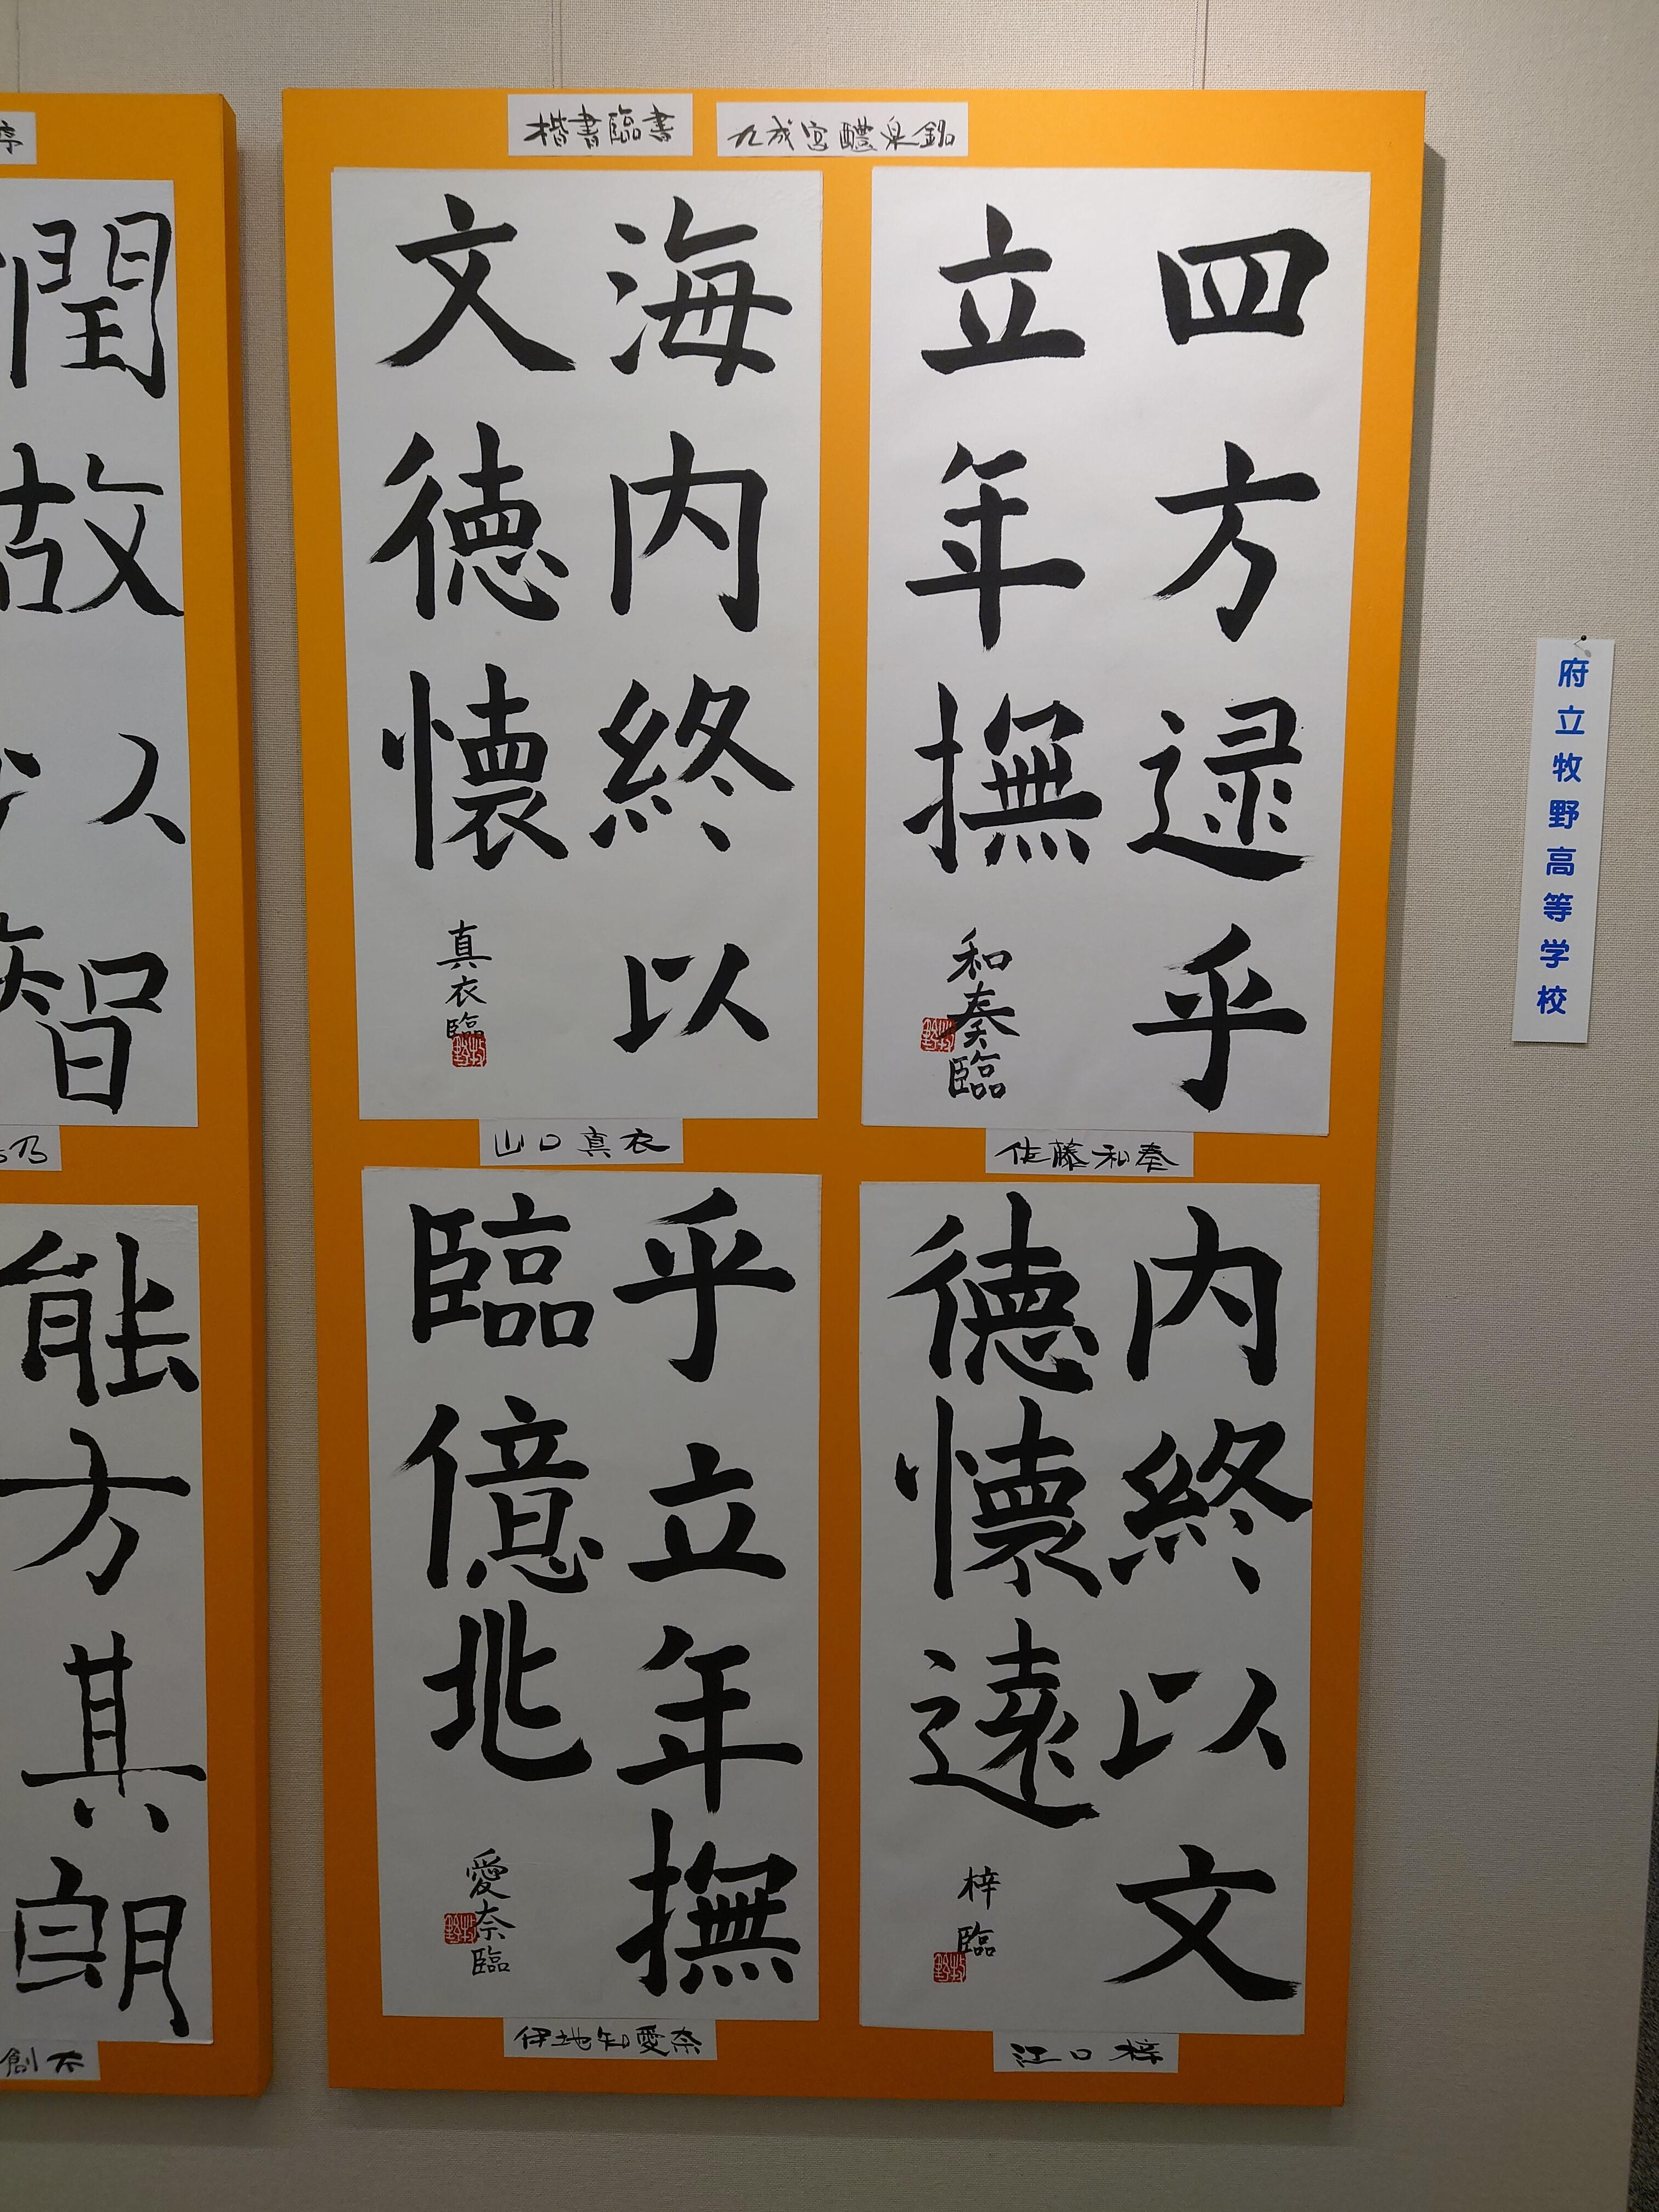 楷書臨書
九成宮醴泉銘
四方逮乎
立年撫
和奏臨
佐藤和奏
海内終以
文徳懐
真衣臨
山口真衣
内終以文
徳懐遠
梓臨
江口梓
乎立年撫
臨億兆
愛奈臨
伊地知愛奈
府立牧野高等学校
序
潤故以智
乃
能方其朗
創太